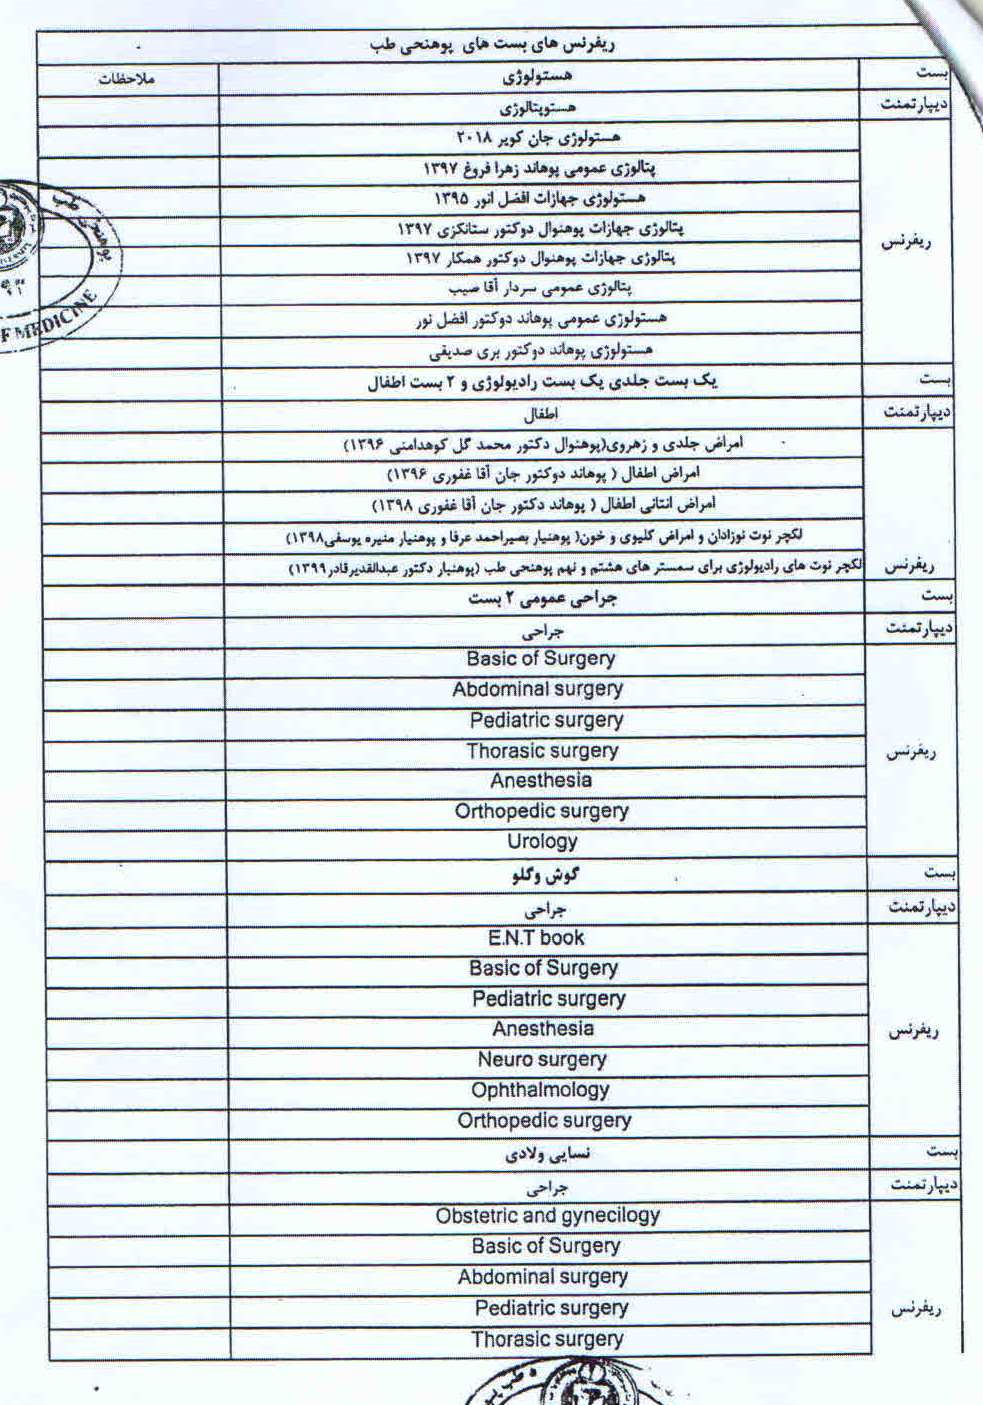 ریفرنس های بست های پوهنحی طب
بست هستولوژی ملاحظات
دیپارتمنت هستوپتالوژی
هستولوژی جان کویر ۲۰۱۸
پتالوژی عمومی پوهاند زهرا فروغ ۱۳۹۷
هستولوژی جهازات افضل انور ۱۳۹۵
پتالوژی جهازات پوهنوال دوکتور ستانکزی ۱۳۹۷
ریفرنس
پتالوژی جهازات پوهنوال دوکتور همکار ۱۳۹۷
پتالوژی عمومی سردار آقا صیب
هستولوژی عمومی پوهاند دوکتور افضل نور
هستولوژی پوهاند دوکتور بری صدیقی
بست یک بست جلدی یک بست رادیولوژی و ۲ بست اطفال
دیپارتمنت اطفال
امراض جلدی و زهروی(پوهنوال دکتور محمد گل کوهدامنی ۱۳۹۶)
امراض اطفال ( پوهاند دوکتور جان آقا غفوری ۱۳۹۶)
امراض انتانی اطفال ( پوهاند دکتور جان آقا غفوری ۱۳۹۸)
لکچر نوت نوزادان و امراض کلیوی و خون( پوهنیار بصیراحمد عرفا و پوهنیار منیره یوسفی۱۳۹۸)
ریفرنس لکچر نوت های رادیولوژی برای سمستر های هشتم و نهم پوهنحی طب (پوهنیار دکتور عبدالقدیرقادر۱۳۹۹)
بست جراحی عمومی ۲ بست
دیپارتمنت جراحی
Basic of Surgery
Abdominal surgery
Pediatric surgery
ریفرنس Thorasic surgery
Anesthesia
Orthopedic surgery
Urology
بست گوش وگلو
دیپارتمنت جراحی
E.N.T book
Basic of Surgery
Pediatric surgery
ریفرنس Anesthesia
Neuro surgery
Ophthalmology
Orthopedic surgery
بست نسایی ولادی
دیپارتمنت جراحی
Obstetric and gynecilogy
Basic of Surgery
Abdominal surgery
ریفرنس Pediatric surgery
Thorasic surgery
پوهنحی طب
F MEDICINE